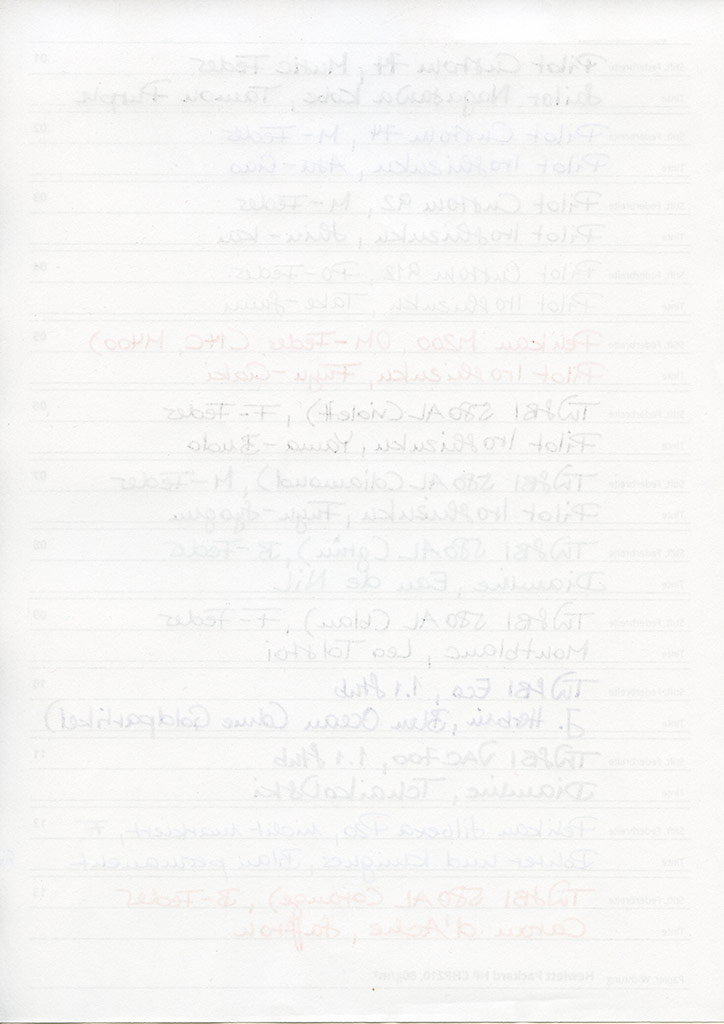 01
Stift, Federbreite Pilot Custom 74, Music Feder
Tinte Sailor Nagasawa Kobe, Taimon Purple
02
Stift, Federbreite Pilot Custom 74, M-Feder
Tinte Pilot Iroshizuku, Asa-Gao
03
Stift, Federbreite Pilot Custom 92, M-Feder
Tinte Pilot Iroshizuku, Shin-kai
04
Stift, Federbreite Pilot Custom 912, Po-Feder
Tinte Pilot Iroshizuku, Take-Sumi
05
Stift, Federbreite Pelikan M200, OM-Feder (14C, M400)
Tinte Pilot Iroshizuku, Fuyu-Gaki
06
Stift, Federbreite TWSBI 580 AL (violett), F-Feder
Tinte Pilot Iroshizuku, Yama-Budo
07
Stift, Federbreite TWSBI 580 AL (diamond), M-Feder
Tinte Pilot Iroshizuku, Fuyu-syogun
08
Stift, Federbreite TWSBI 580 AL (grün), B-Feder
Tinte Diamine, Eau de Nil
09
Stift, Federbreite TWSBI 580 AL (blau), F-Feder
Tinte Montblanc, Leo Tolstoi
10
Stift, Federbreite TWSBI Eco, 1.1 Stub
Tinte J. Herbin, Bleu Ocean (ohne Goldpartikel)
11
Stift, Federbreite TWSBI VAC 700, 1.1 Stub
Tinte Diamine, Tchaikovski
12
Stift, Federbreite Pelikan Silvexa P20, nicht markiert, F
Tinte Rohrer und Klingner, Blau permanent
13
Stift, Federbreite TWSBI 580 AL (orange), B-Feder
Tinte Caran d'Ache, Saffron
Papier, Wichtung Hewlett Packard HP CHP210, 80g/m²